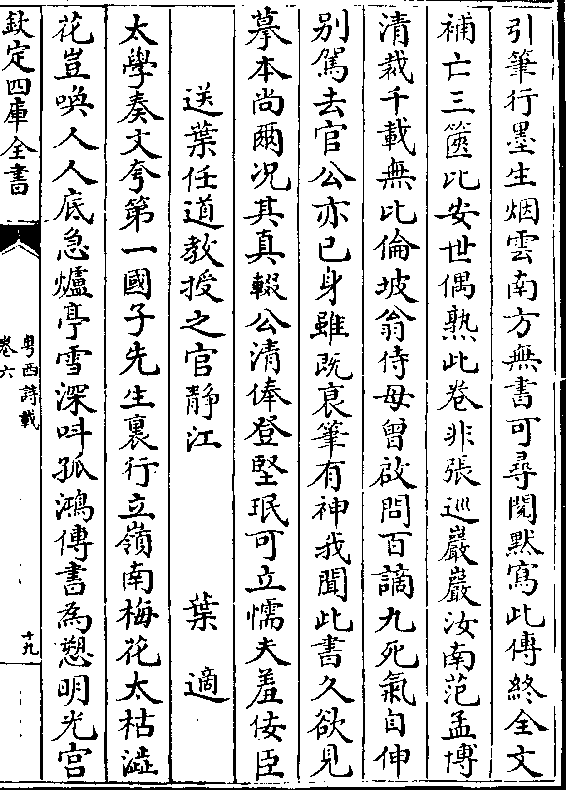 引筆行墨生烟雲南方無書可尋閱默寫此傳終全文
補亡三篋比安世偶熟此卷非張巡巖巖汝南范孟博
清裁千載無比倫坡翁侍母曾啟問百謫九死氣自伸
别駕去官公亦已身雖既衰筆有神我聞此書久欲見
摹本尚爾况其真輟公清俸登堅珉可立懦夫羞佞臣
送葉任道教授之官静江　葉適
太學奏文夸第一國子先生裏行立嶺南梅花太枯澁
花豈喚人人底急爐亭雪深叫孤鴻傳書為愬明光宫
欽定四庫全書
粤西詩載
卷六
十九